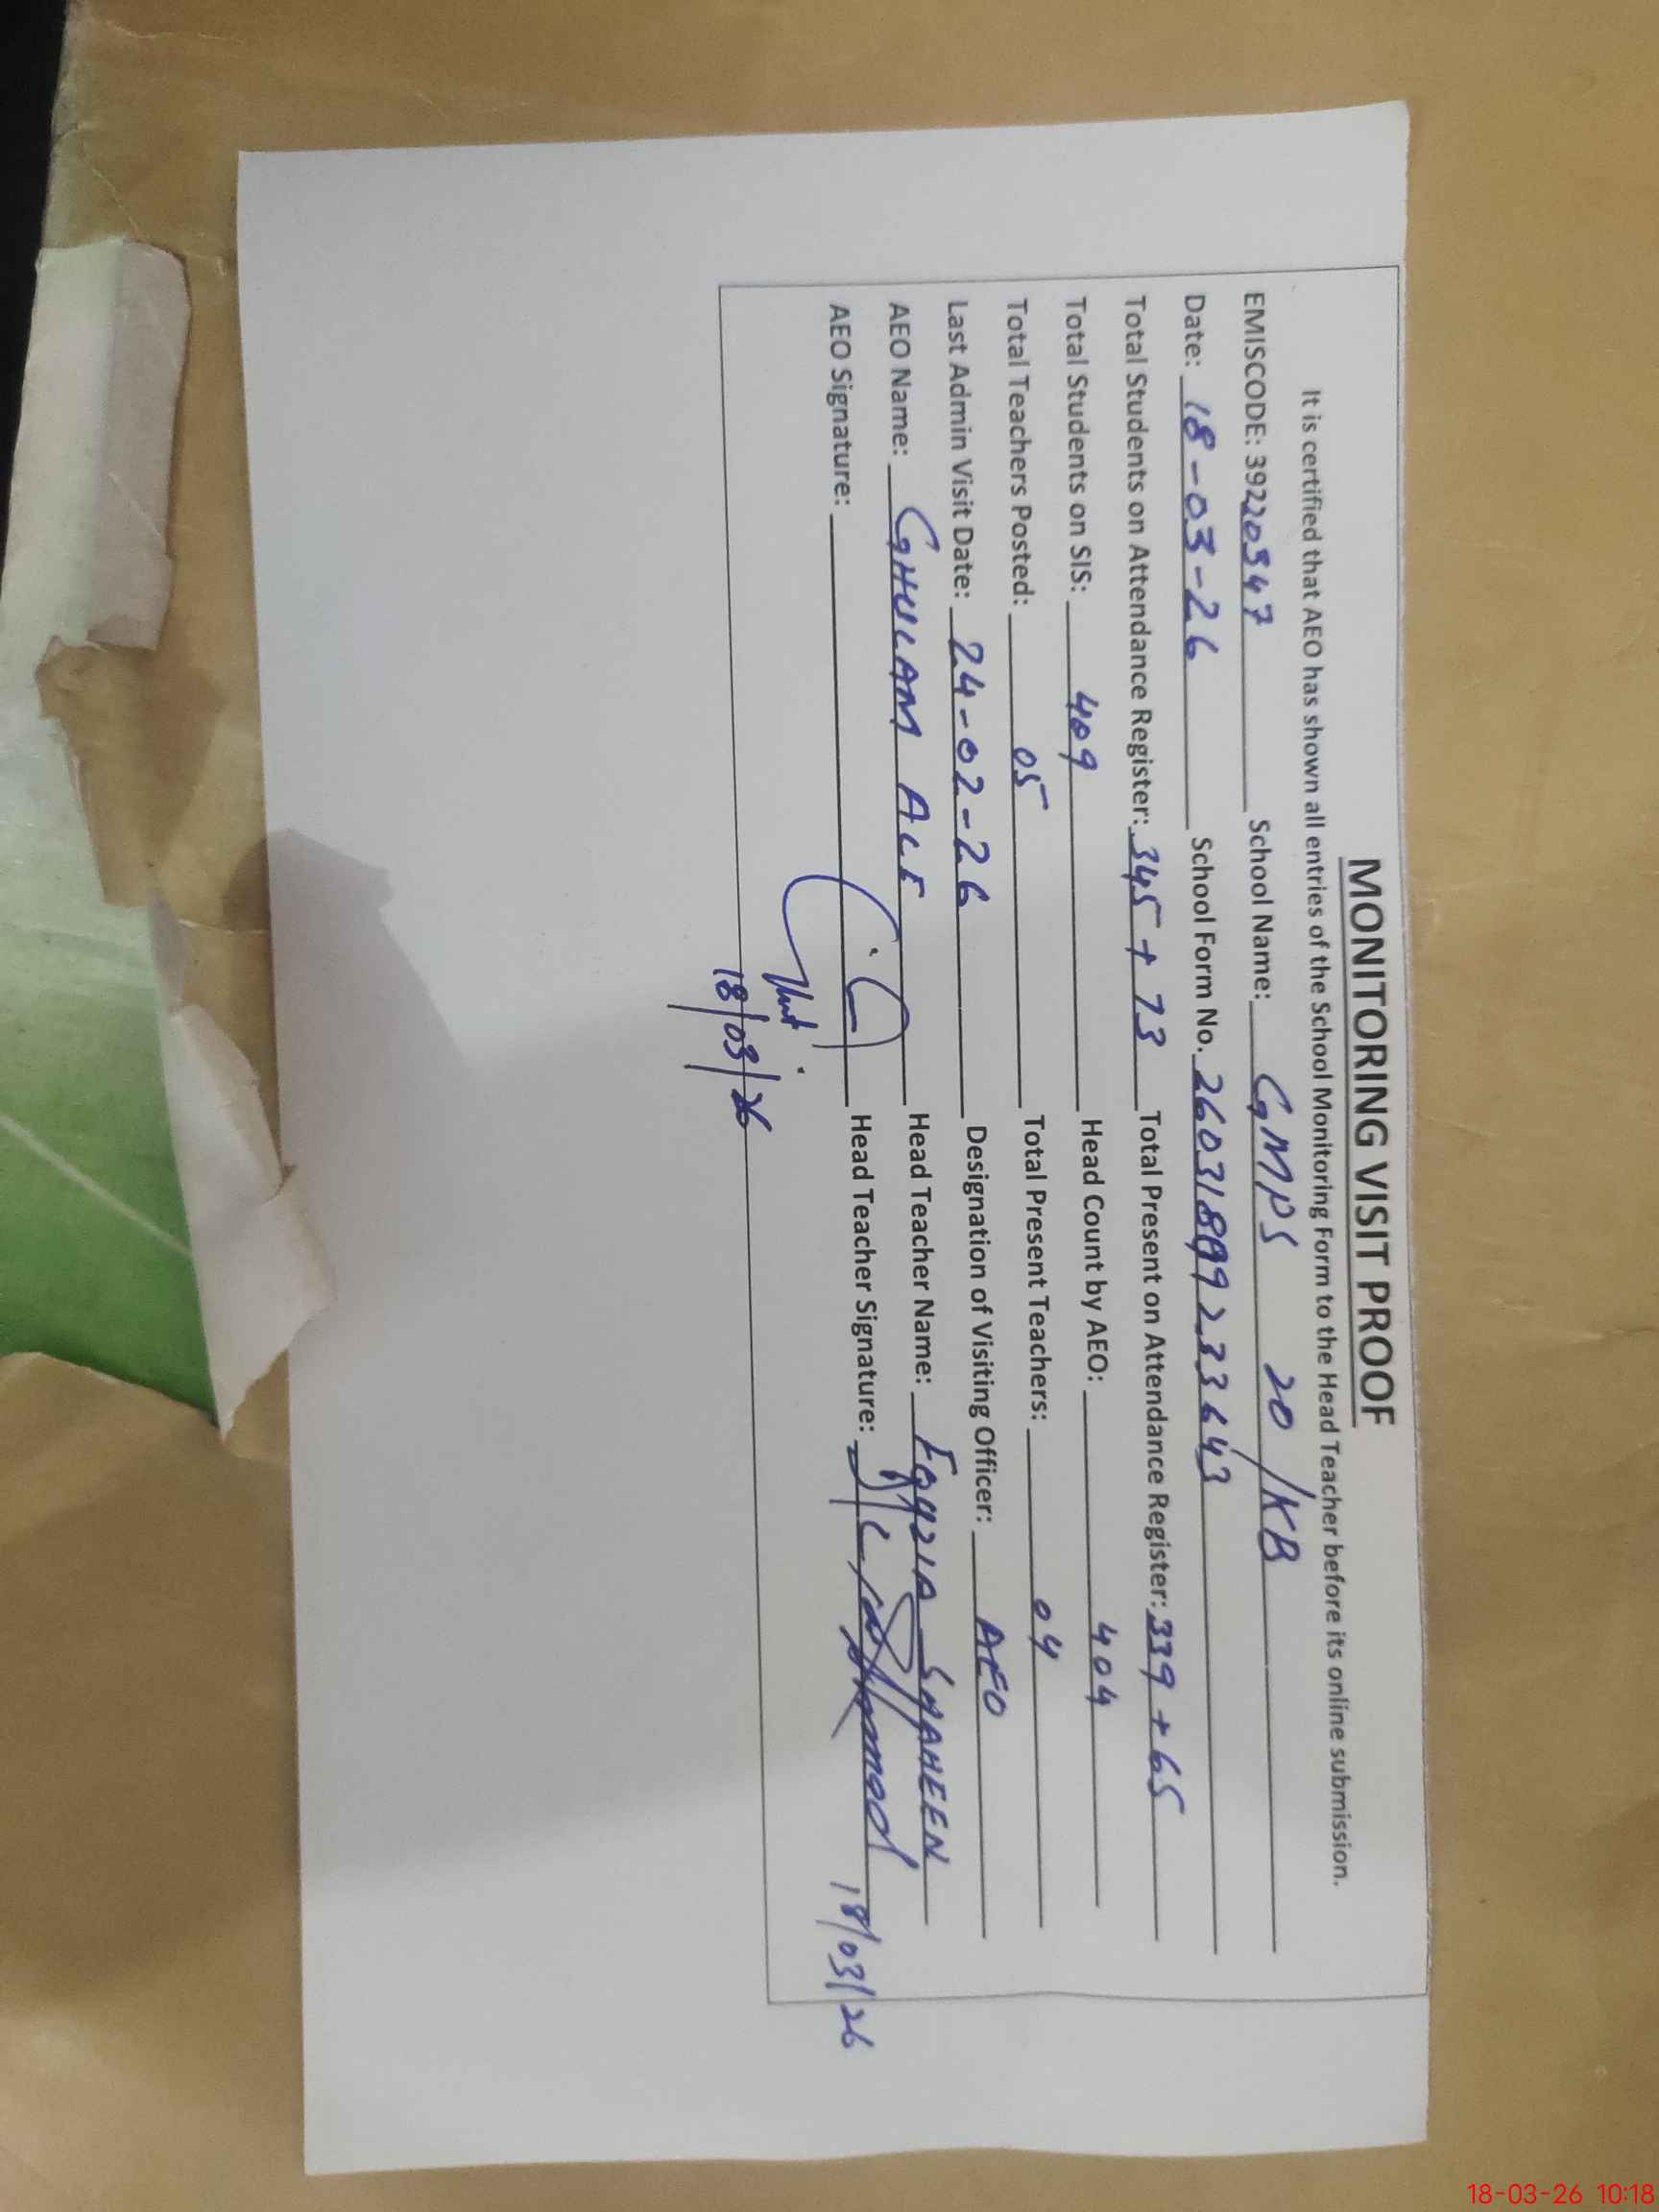 MONITORING VISIT PROOF
It is certified that AEO has shown all entries of the School Monitoring Form to the Head Teacher before its online submission.
EMISCODE: 39220547 School Name: GMPS 20/KB
Date: 18-03-26 School Form No. 26031899233643
Total Students on Attendance Register: 345 + 73 Total Present on Attendance Register: 339 + 65
Total Students on SIS: 409 Head Count by AEO: 404
Total Teachers Posted: 05 Total Present Teachers: 04
Last Admin Visit Date: 24-02-26 Designation of Visiting Officer: AEO
AEO Name: GHULAM ALI Head Teacher Name: FOUZIA SHAHEEN
AEO Signature: Head Teacher Signature:
18/03/26
18/03/26
18-03-26 10:18